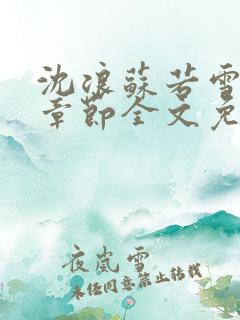 沈浪蘇若雪
章節全文免
夜嵐雪
未經同意禁止轉載